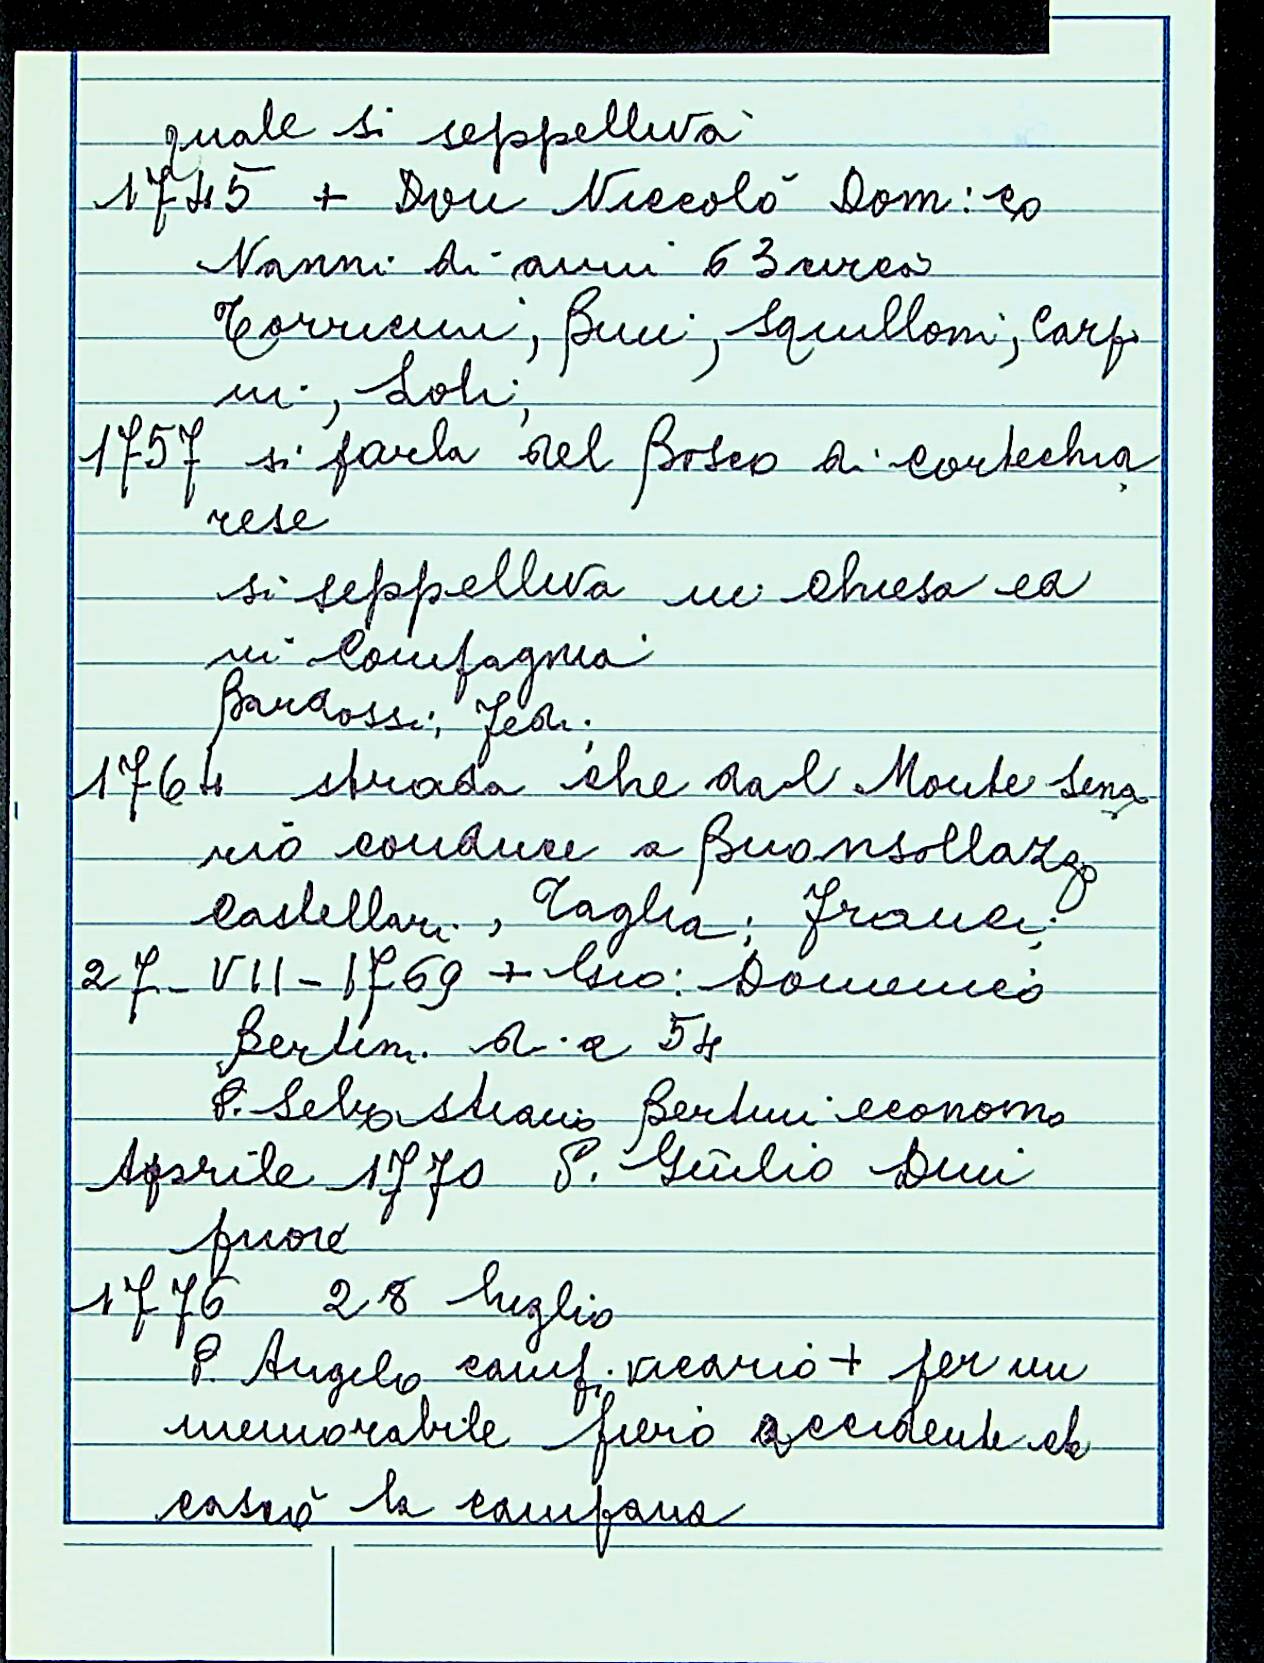 quale si seppelliva
1745 + Don Niccolò Dom: co
Nanni di anni 63 circa
Torricini, Buci, Squilloni, Carp
ini, Soli,
1757 si parla del Bosco di cortechia
rese
si seppelliva in chiesa ed
in Compagnia
Bardossi, Fedi,
1764 strada che dal Monte Sena
rio conduce a Buonsollazzo
Castellari, Taglia, Franci,
27-VII-1769 + Gio: Domenico
Bertini di a 54
P. Sebastiano Bertini economo
Aprile 1770 P. Giulio Dini
priore
1776 28 luglio
P. Angelo camp. vicario + per un
memorabile fiero accidente ch
cascò la campana